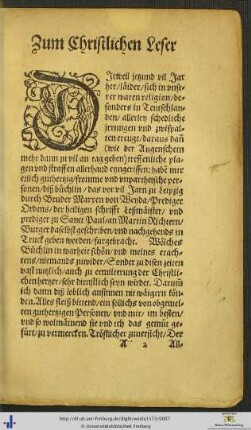 Zum Christlichen Leser
DJeweil jetzund vil Jar
her/ läider/ sich in vnse-
rer waren religion/ be-
sonders in Teutschlan-
den/ allerley schedliche
jrrungen vnd zwispal-
ten erreugt/ daraus dañ
(wie der Augenschein
mehr dann zu vil an tag geben) treffenliche pla-
gen vnd straffen allerhand eyngerissen: habë mir
etlich gutherzig/ fromme vnd vnpartheysche per-
sonen/ diß büchlin/ das vor vil Jarn zu Leipzig
durch Bruder Marxen von Weyda/ Prediger
Ordens/ der heiligen schrifft Leßmaister/ vnd
prediger zu Sanct Paul/ an Martin Richtern/
Burger daselbst geschriben/ vnd nachgehends in
Truck geben worden/ fürgebracht. Wölches
Büchlin in warheit schön/ vnd meines erach-
tens/ niemands zuwider/ Sonder zu disen zeiten
vast nutzlich/ auch zu ermunterung der Christli-
chen hertzen/ sehr dienstlich seyn würdt. Darum
ich dann diß loblich ansinnen nit waigern kön-
den. Alles fleiß bittend/ ein söllichs von obgemel-
ten gutherzigen Personen/ vnd mir/ im besten/
vnd so wolmainend sie vnd ich das gemüt ge-
fürt/ zu vermercken. Tröstlicher zuuersicht/ Der
A 2 All-
http://dl.ub.uni-freiburg.de/diglit/weida1573/0007
© Universitätsbibliothek Freiburg